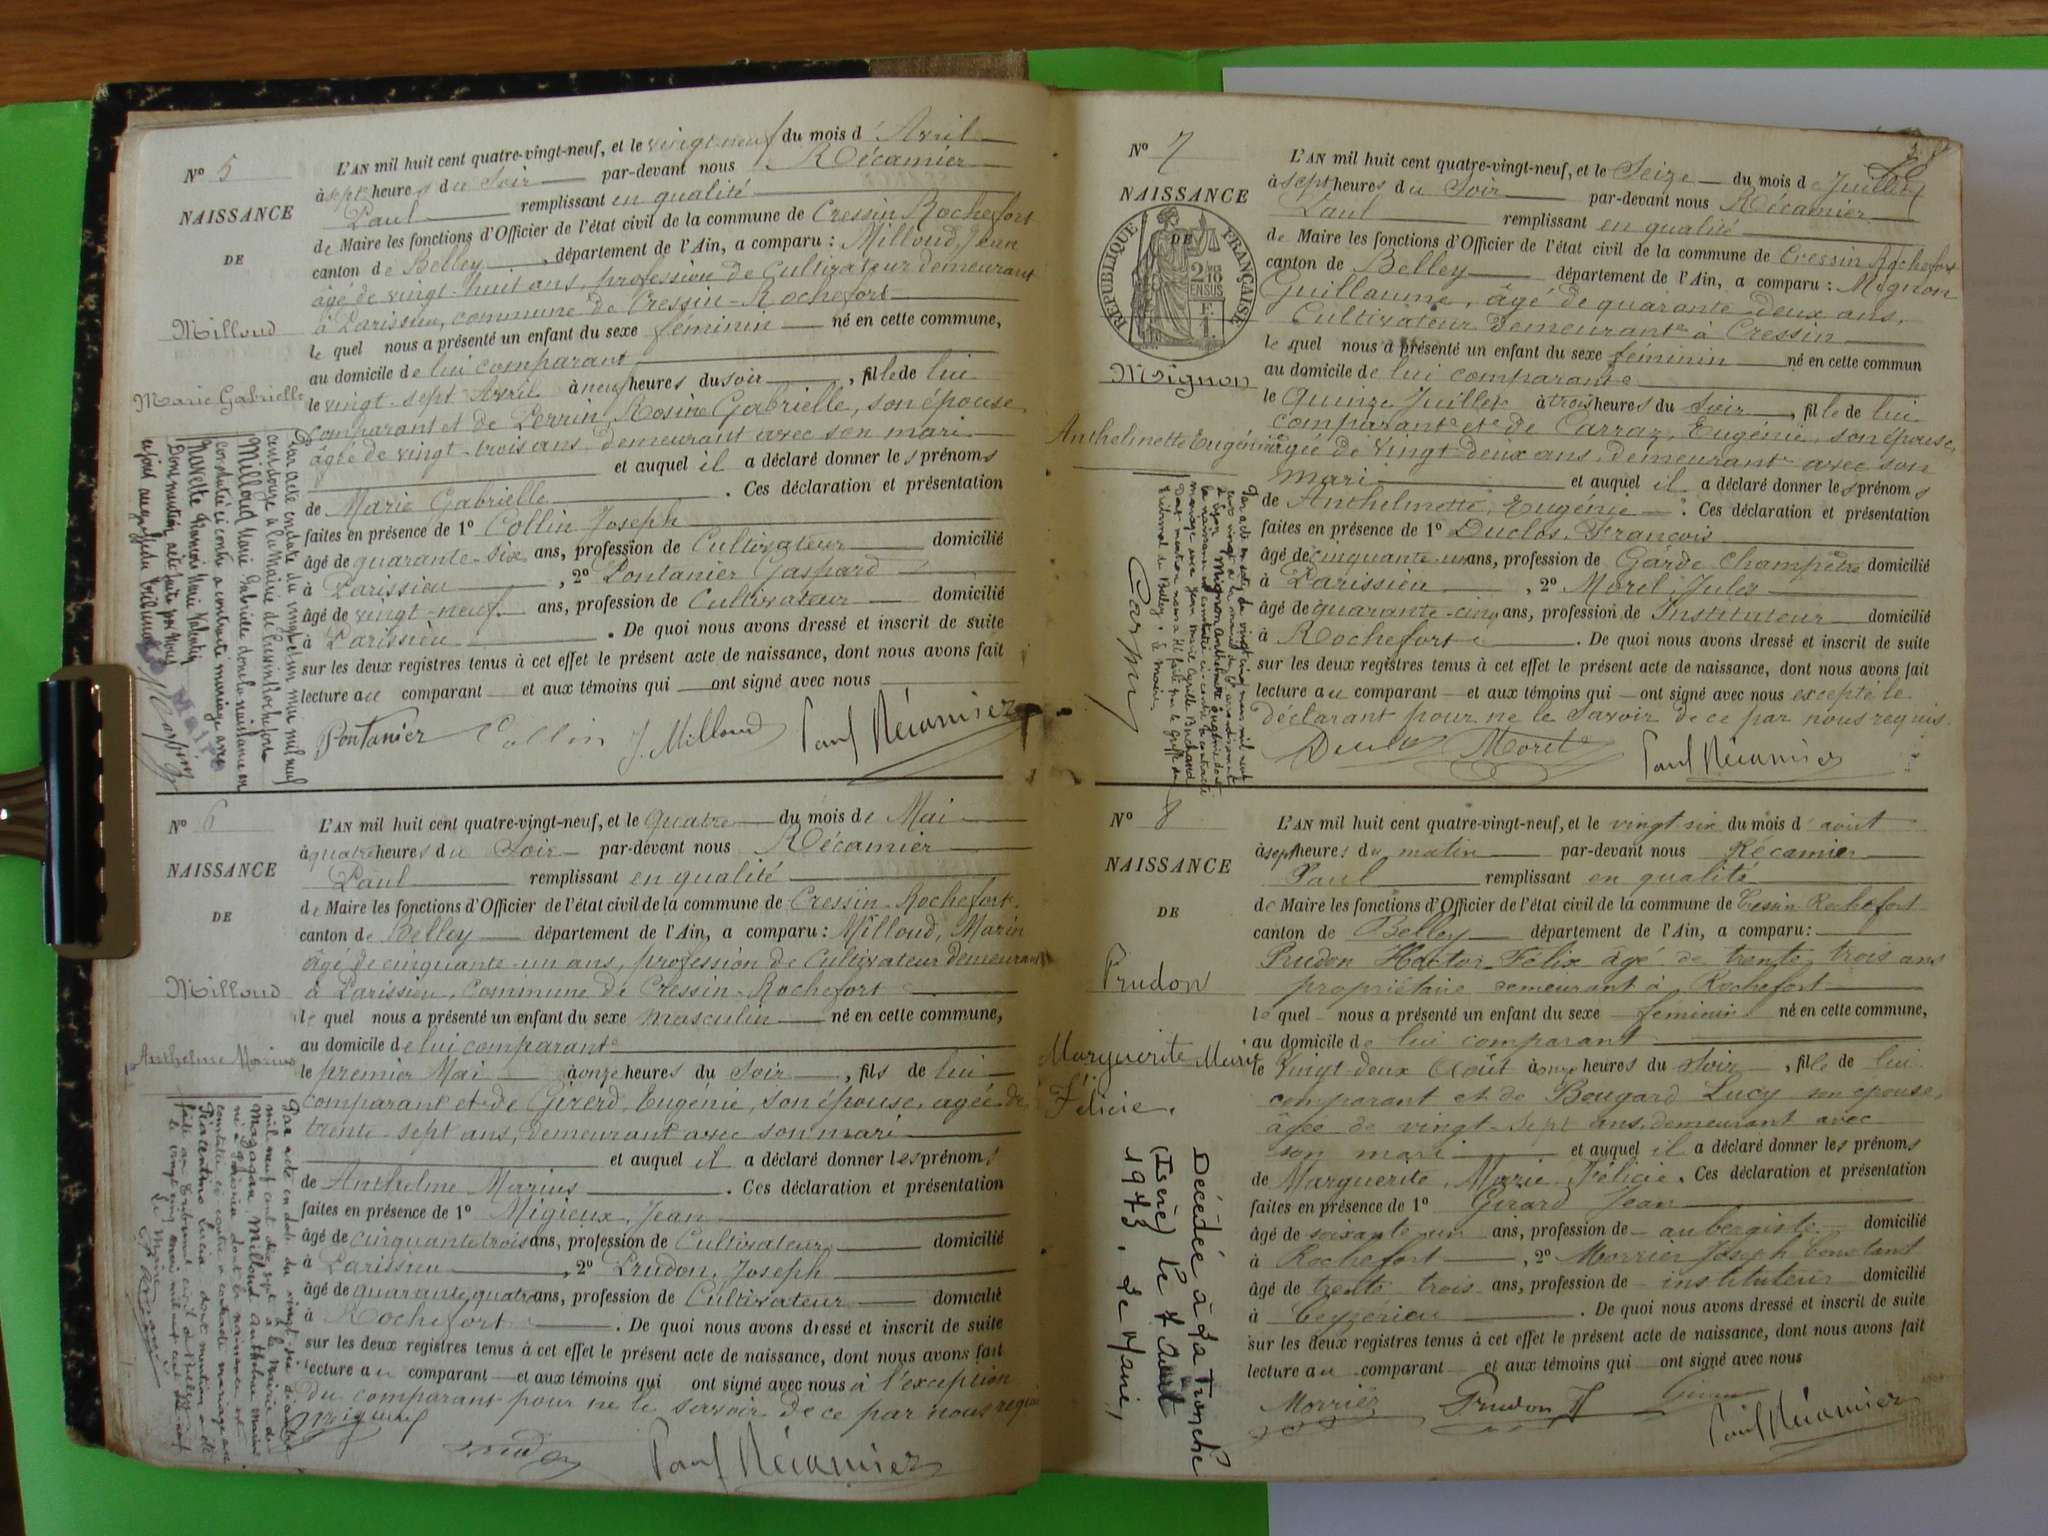 Nº 5
NAISSANCE
DE
Milloud
Marie Gabrielle
L'AN mil huit cent quatre-vingt-neuf, et le vingt-neuf du mois d'Avril
à sept heures du Soir par-devant nous Récamier
Paul remplissant en qualité
de Maire les fonctions d'Officier de l'état civil de la commune de Cressin Rochefort
canton de Belley, département de l'Ain, a comparu : Milloud, Jean
âgé de vingt-huit ans, profession de Cultivateur demeurant
à Parissieu, commune de Cressin-Rochefort
le quel nous a présenté un enfant du sexe féminin né en cette commune,
au domicile de lui comparant
le vingt-sept Avril à neuf heures du soir, fille de lui
comparant et de Perrin, Rosine Gabrielle, son épouse
âgée de vingt-trois ans demeurant avec son mari
et auquel il a déclaré donner les prénoms
de Marie Gabrielle. Ces déclaration et présentation
faites en présence de 1º Collin Joseph
âgé de quarante-six ans, profession de Cultivateur domicilié
à Parissieu, 2º Pontanier Gaspard
âgé de vingt-neuf ans, profession de Cultivateur domicilié
à Parissieu. De quoi nous avons dressé et inscrit de suite
sur les deux registres tenus à cet effet le présent acte de naissance, dont nous avons fait
lecture au comparant et aux témoins qui ont signé avec nous
Pontanier Collin J. Milloud Paul Récamier
Par acte en date du vingt et un mai mil neuf
cent douze à la Mairie de Cressin Rochefort
Milloud Marie Gabrielle dont la naissance est
constatée ci contre a contracté mariage avec
Nº 6
NAISSANCE
DE
Milloud
Anthelme Marius
L'AN mil huit cent quatre-vingt-neuf, et le quatre du mois de Mai
à quatre heures du Soir par-devant nous Récamier
Paul remplissant en qualité
de Maire les fonctions d'Officier de l'état civil de la commune de Cressin-Rochefort
canton de Belley département de l'Ain, a comparu : Milloud, Marin
âgé de cinquante-un ans, profession de Cultivateur demeurant
à Parissieu, Commune de Cressin-Rochefort
le quel nous a présenté un enfant du sexe masculin né en cette commune,
au domicile de lui comparant
le premier Mai à onze heures du Soir, fils de lui
comparant et de Girerd, Eugénie, son épouse, agée de
trente-sept ans, demeurant avec son mari
et auquel il a déclaré donner les prénoms
de Anthelme Marius. Ces déclaration et présentation
faites en présence de 1º Migieux, Jean
âgé de cinquante trois ans, profession de Cultivateur domicilié
à Parissieu, 2º Prudon, Joseph
âgé de quarante quatre ans, profession de Cultivateur domicilié
à Rochefort. De quoi nous avons dressé et inscrit de suite
sur les deux registres tenus à cet effet le présent acte de naissance, dont nous avons fait
lecture au comparant et aux témoins qui ont signé avec nous à l'exception
du comparant pour ne le savoir de ce par nous requis
Migieux Prudon Paul Récamier
Nº 7
NAISSANCE
DE
RÉPUBLIQUE FRANÇAISE
Mignon
Anthelmette Eugénie
L'AN mil huit cent quatre-vingt-neuf, et le Seize du mois de Juillet
à sept heures du Soir par-devant nous Récamier
Paul remplissant en qualité
de Maire les fonctions d'Officier de l'état civil de la commune de Cressin Rochefort
canton de Belley département de l'Ain, a comparu : Mignon
Guillaume, âgé de quarante deux ans,
Cultivateur demeurant à Cressin
le quel nous a présenté un enfant du sexe féminin né en cette commun
au domicile de lui comparant
le Quinze Juillet à trois heures du Soir, fille de lui
comparant et de Carraz, Eugénie, son épouse,
âgée de vingt-deux ans, demeurant avec son
mari et auquel il a déclaré donner les prénoms
de Anthelmette, Eugénie. Ces déclaration et présentation
faites en présence de 1º Duclos, François
âgé de cinquante un ans, profession de Garde Champêtre domicilié
à Parissieu, 2º Morel, Jules
âgé de quarante-cinq ans, profession de Instituteur domicilié
à Rochefort. De quoi nous avons dressé et inscrit de suite
sur les deux registres tenus à cet effet le présent acte de naissance, dont nous avons fait
lecture au comparant et aux témoins qui ont signé avec nous excepté le
déclarant pour ne le savoir de ce par nous requis.
Duclos Morel Paul Récamier
Nº 8
NAISSANCE
DE
Prudon
Marguerite Marie
Félicie.
L'AN mil huit cent quatre-vingt-neuf, et le vingt six du mois d'août
à sept heures du matin par-devant nous Récamier
Paul remplissant en qualité
de Maire les fonctions d'Officier de l'état civil de la commune de Cressin Rochefort
canton de Belley département de l'Ain, a comparu :
Prudon Hector Félix âgé de trente trois ans
propriétaire demeurant à Rochefort
le quel nous a présenté un enfant du sexe féminin né en cette commune,
au domicile de lui comparant
le Vingt deux Août à onze heures du Soir, fille de lui
comparant et de Bougard Lucy son épouse,
âgée de vingt-sept ans demeurant avec
son mari et auquel il a déclaré donner les prénoms
de Marguerite, Marie, Félicie. Ces déclaration et présentation
faites en présence de 1º Girard Jean
âgé de soixante un ans, profession de aubergiste domicilié
à Rochefort, 2º Morrier Joseph Constant
âgé de trente trois ans, profession de instituteur domicilié
à Ceyzerieu. De quoi nous avons dressé et inscrit de suite
sur les deux registres tenus à cet effet le présent acte de naissance, dont nous avons fait
lecture au comparant et aux témoins qui ont signé avec nous
Morrier Prudon H Paul Récamier
Décédée à La Tronche
(Isère) le 7 août
1973. Le Maire,